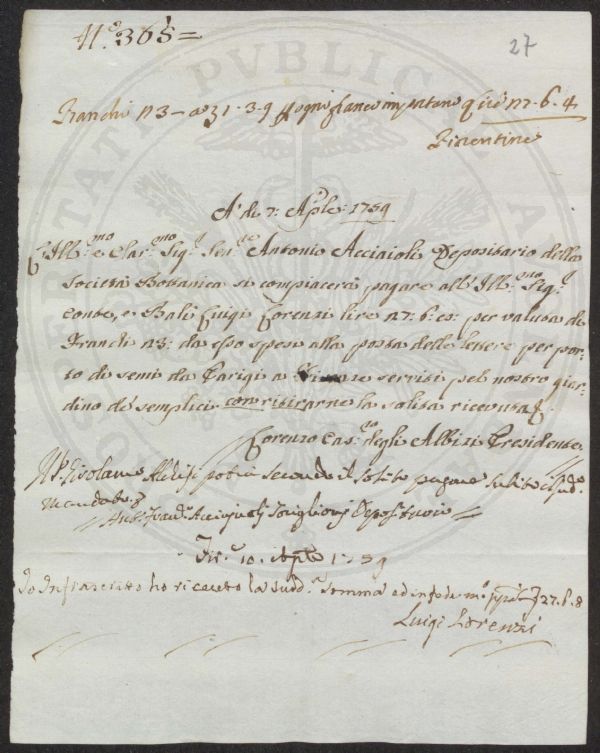 N.º 365=
27
Franchi n 3 - a 31 - 3 - 9 ogni franco importano
Fiorentine
A' di 7: Aple: 1759
Ill:mo e Clar:mo Sig.e Sen:re Antonio Acciaioli Depositario della
Società Botanica si compiacerà pagare all' Ill:mo Sig.e
Conte, e Balì Luigi Lorenzi lire per valuta di
Franchi da esso spesi alla posta delle lettere per por-
to di semi da Parigi a Firenze serviti pel nostro giar-
dino de' semplici con ritirarne la solita ricevuta
Lorenzo Cas:to degli Albizi Presidente
potrà secondo il solito pagare subito
mandato
Depositario
Fir.e 10. Aple 1759
Io Infrascritto ho riceuto la sudd.a somma ed in fede m.o pp.a 27.6.8
Luigi Lorenzi